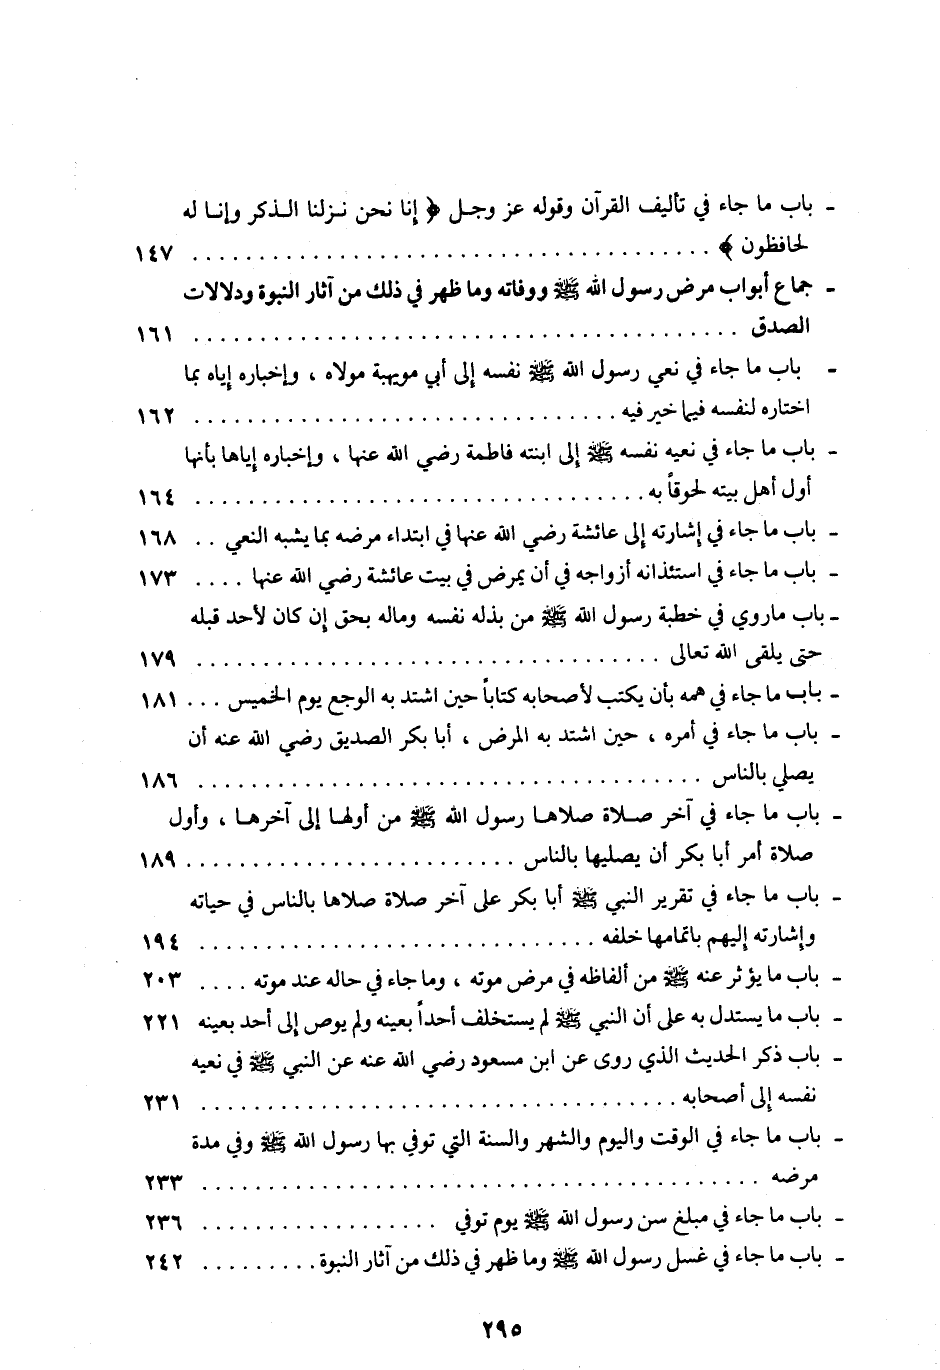 - باب ما جاء في تأليف القرآن وقوله عز وجل ﴿ إنا نحن نزلنا الذكر وإنا له
لحافظون ﴾ . . . . . . . . . . . . . . . . . . . . ١٤٧
- جماع أبواب مرض رسول الله ﷺ ووفاته وما ظهر في ذلك من آثار النبوة ودلالات
الصدق . . . . . . . . . . . . . . . . . . . . ١٦١
- باب ما جاء في نعي رسول الله ﷺ نفسه إلى أبي مويهبة مولاه ، وإخباره إياه بما
اختاره لنفسه فيما خير فيه . . . . . . . . . . . . . . . . ١٦٢
- باب ما جاء في نعيه نفسه ﷺ إلى ابنته فاطمة رضي الله عنها ، وإخباره إياها بأنها
أول أهل بيته لحوقاً به . . . . . . . . . . . . . . . . ١٦٤
- باب ما جاء في إشارته إلى عائشة رضي الله عنها في ابتداء مرضه بما يشبه النعي . . ١٦٨
- باب ما جاء في استئذانه أزواجه في أن يمرض في بيت عائشة رضي الله عنها . . . . ١٧٣
- باب ماروي في خطبة رسول الله ﷺ من بذله نفسه وماله بحق إن كان لأحد قبله
حتى يلقى الله تعالى . . . . . . . . . . . . . . . . ١٧٩
- باب ما جاء في همه بأن يكتب لأصحابه كتاباً حين اشتد به الوجع يوم الخميس . . . ١٨١
- باب ما جاء في أمره ، حين اشتد به المرض ، أبا بكر الصديق رضي الله عنه أن
يصلي بالناس . . . . . . . . . . . . . . . . . . ١٨٦
- باب ما جاء في آخر صلاة صلاها رسول الله ﷺ من أولها إلى آخرها ، وأول
صلاة أمر أبا بكر أن يصليها بالناس . . . . . . . . . . . . ١٨٩
- باب ما جاء في تقرير النبي ﷺ أبا بكر على آخر صلاة صلاها بالناس في حياته
وإشارته إليهم باتمامها خلفه . . . . . . . . . . . . . . ١٩٤
- باب ما يؤثر عنه ﷺ من ألفاظه في مرض موته ، وما جاء في حاله عند موته . . . . ٢٠٣
- باب ما يستدل به على أن النبي ﷺ لم يستخلف أحداً بعينه ولم يوص إلى أحد بعينه ٢٢١
- باب ذكر الحديث الذي روى عن ابن مسعود رضي الله عنه عن النبي ﷺ في نعيه
نفسه إلى أصحابه . . . . . . . . . . . . . . . . . ٢٣١
- باب ما جاء في الوقت واليوم والشهر والسنة التي توفي بها رسول الله ﷺ وفي مدة
مرضه . . . . . . . . . . . . . . . . . . . . ٢٣٣
- باب ما جاء في مبلغ سن رسول الله ﷺ يوم توفي . . . . . . . . . ٢٣٦
- باب ما جاء في غسل رسول الله ﷺ وما ظهر في ذلك من آثار النبوة . . . . . . ٢٤٢
٢٩٥